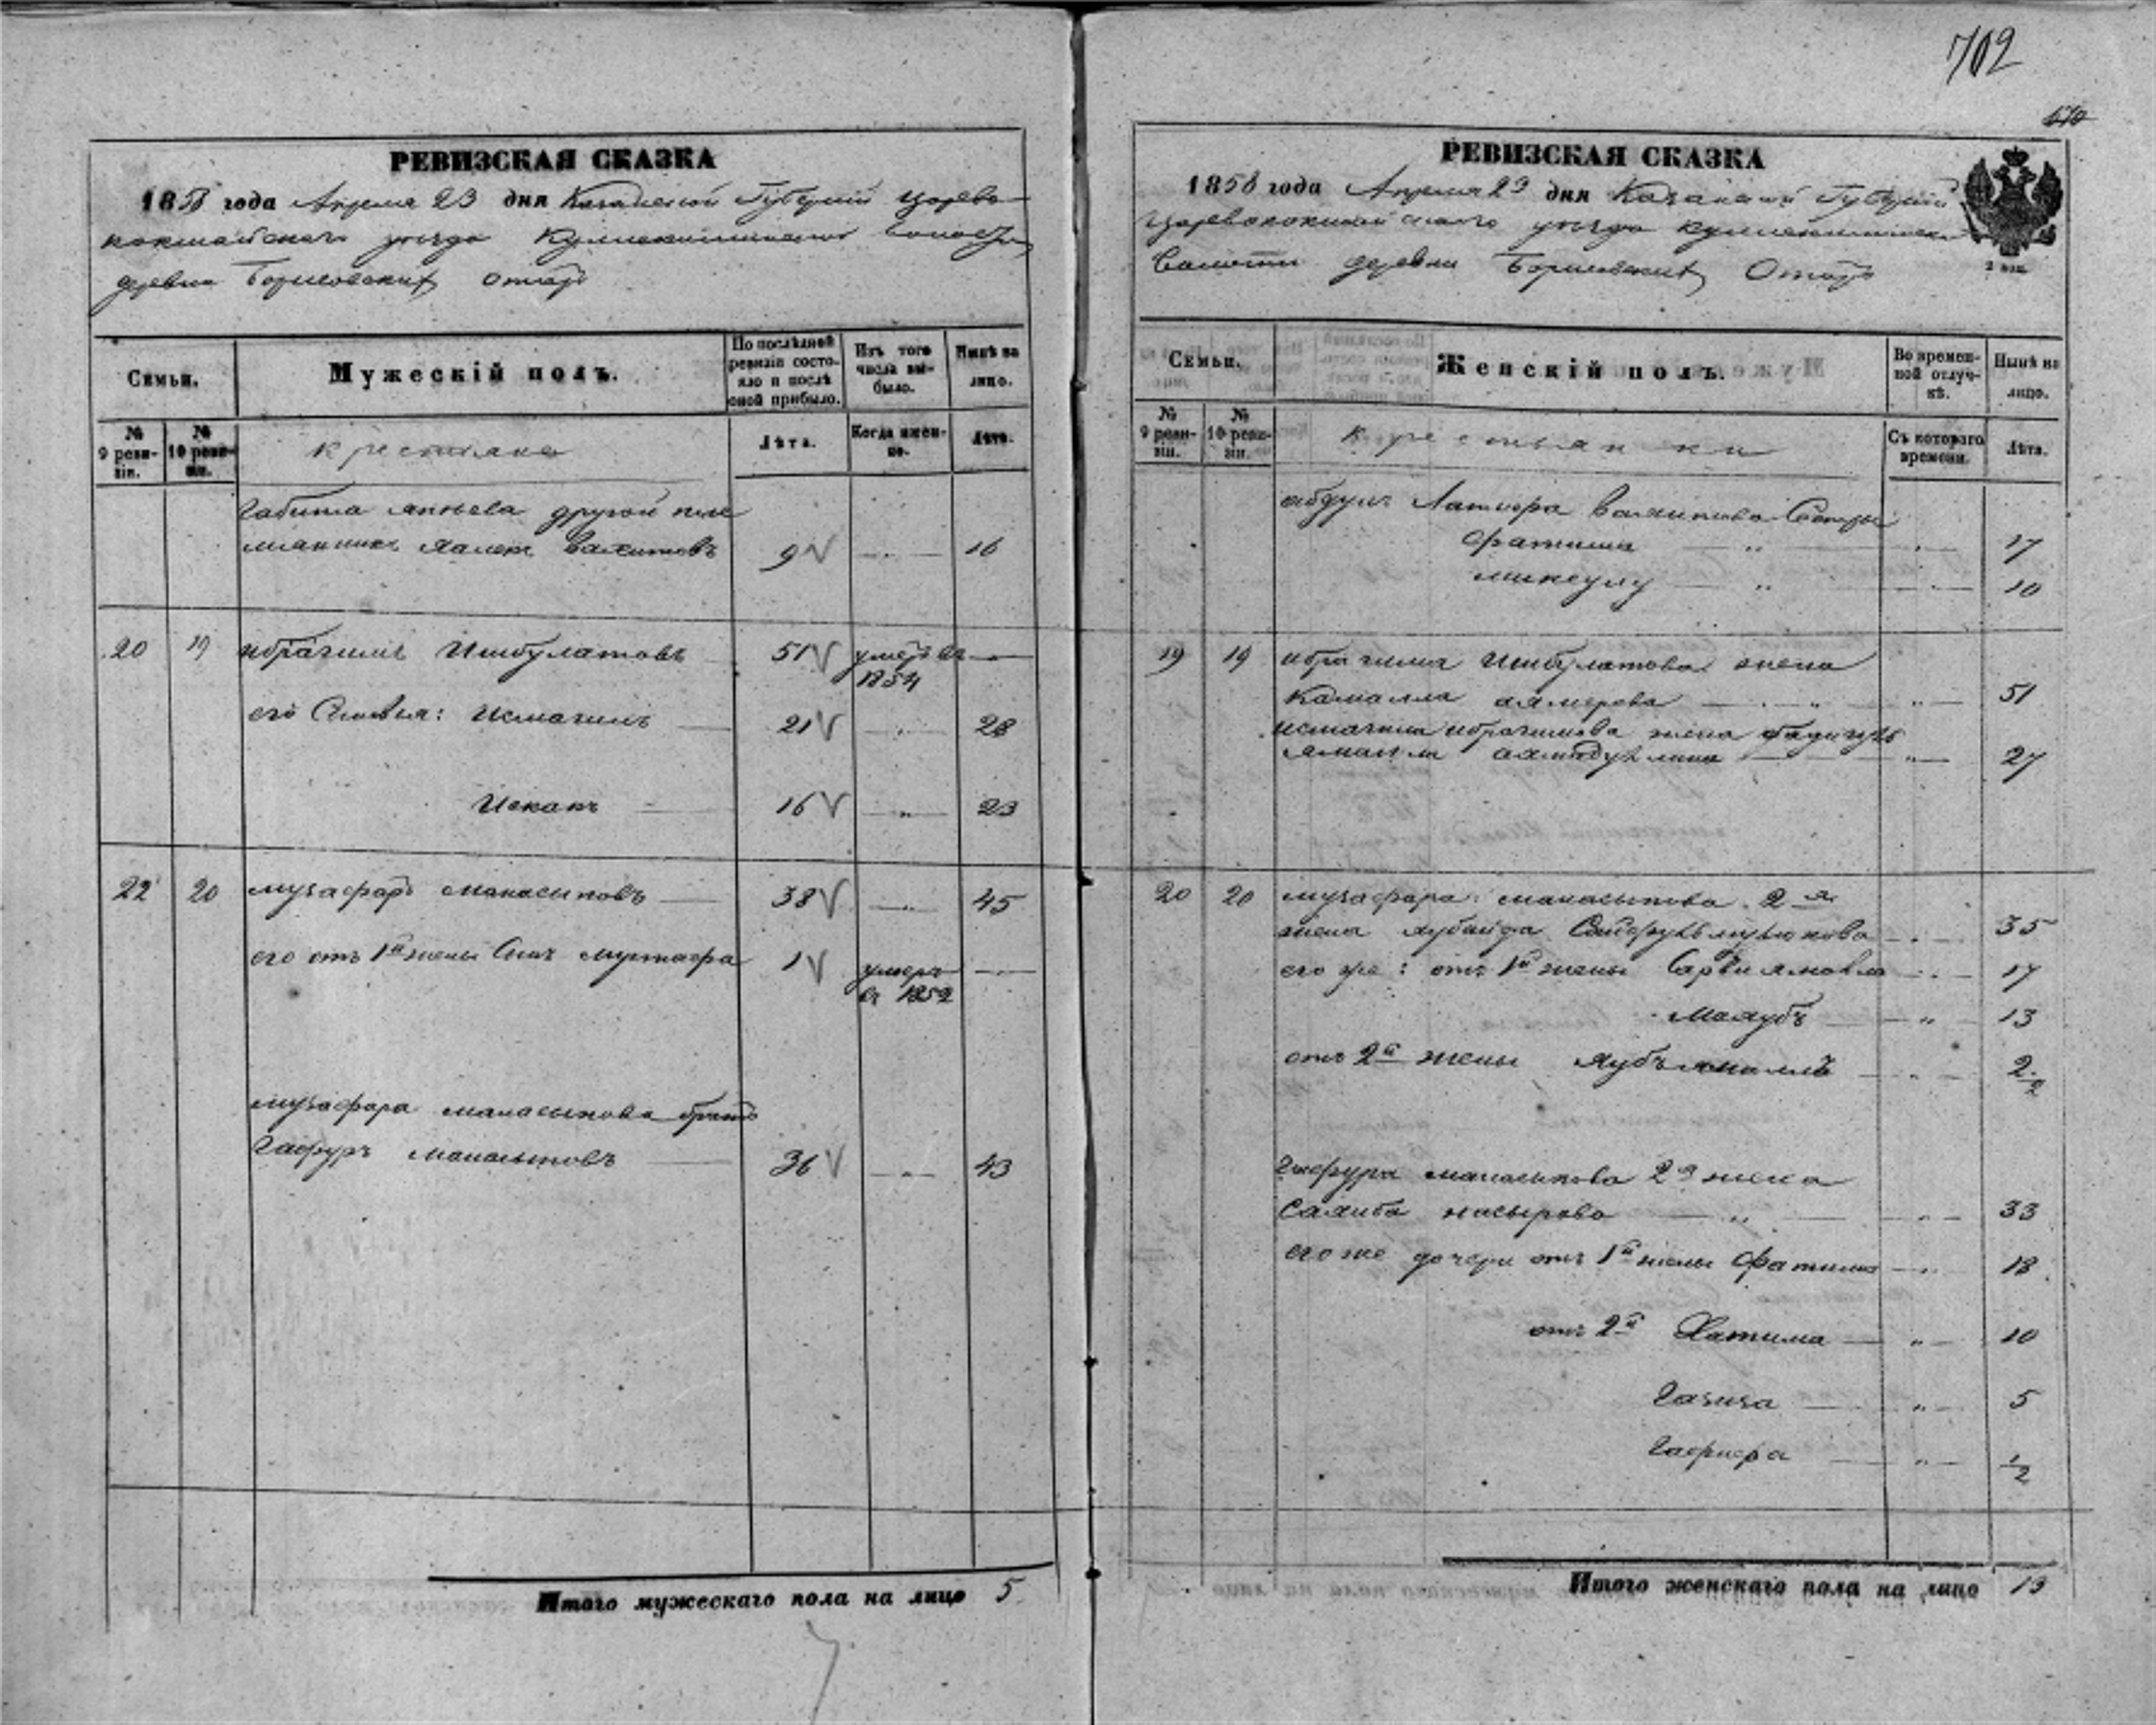 702
670
РЕВИЗСКАЯ СКАЗКА
1858 года Апреля 23 дня Казанской Губерніи Царево
кокшайскаго уезда волости
деревни Отаръ
Семьи.
Мужескій полъ.
По послѣдней ревизіи состояло и послѣ оной прибыло.
Изъ того числа выбыло.
Нынѣ на лицо.
№ 9 ревизіи.
№ 10 ревизіи.
крестьяне
Лѣта.
Когда именно.
Лѣта.
Габита другой пле
мянникъ Валитовъ 9 V — " — 16
20 19 ибрагимъ Ишбулатовъ 51 V умеръ въ —
1854
его Сыновья: Исмагилъ 21 V — " — 28
Искакъ 16 V — " — 23
22 20 музафаръ манасыповъ 38 V — " — 45
его отъ 1й жены Сынъ муртафа 1 V умеръ —
въ 1852
музафара манасыпова братъ
Гафуръ манасыповъ 36 V — " — 43
Итого мужескаго пола на лицо 5
РЕВИЗСКАЯ СКАЗКА
1858 года Апреля 23 дня Казанской Губерніи
Царевококшайскаго уезда
Волости деревни Отаръ
2 коп.
Семьи.
Женскій полъ.
Во временной отлучкѣ.
Нынѣ на лицо.
№ 9 ревизіи.
№ 10 ревизіи.
крестьянки
Съ котораго времени.
Лѣта.
абдулъ Латифа Валитова Сестры
Фатима — " — 17
минсулу — " — 10
19 19 ибрагима Ишбулатова жена
Камалла — " — 51
исмагила ибрагимова жена
— " — 27
20 20 музафара манасыпова 2я
жена хубайда — " — 35
его же: отъ 1й жены — " — 17
Махубъ — " — 13
отъ 2й жены — " — 2 1/2
Гафура манасыпова 2я жена
Салиба насырова — " — 33
его же дочери отъ 1й жены Фатима — " — 18
отъ 2й Хатима — " — 10
Газиза — " — 5
Гафифа — " — 1/2
Итого женскаго пола на лицо 13